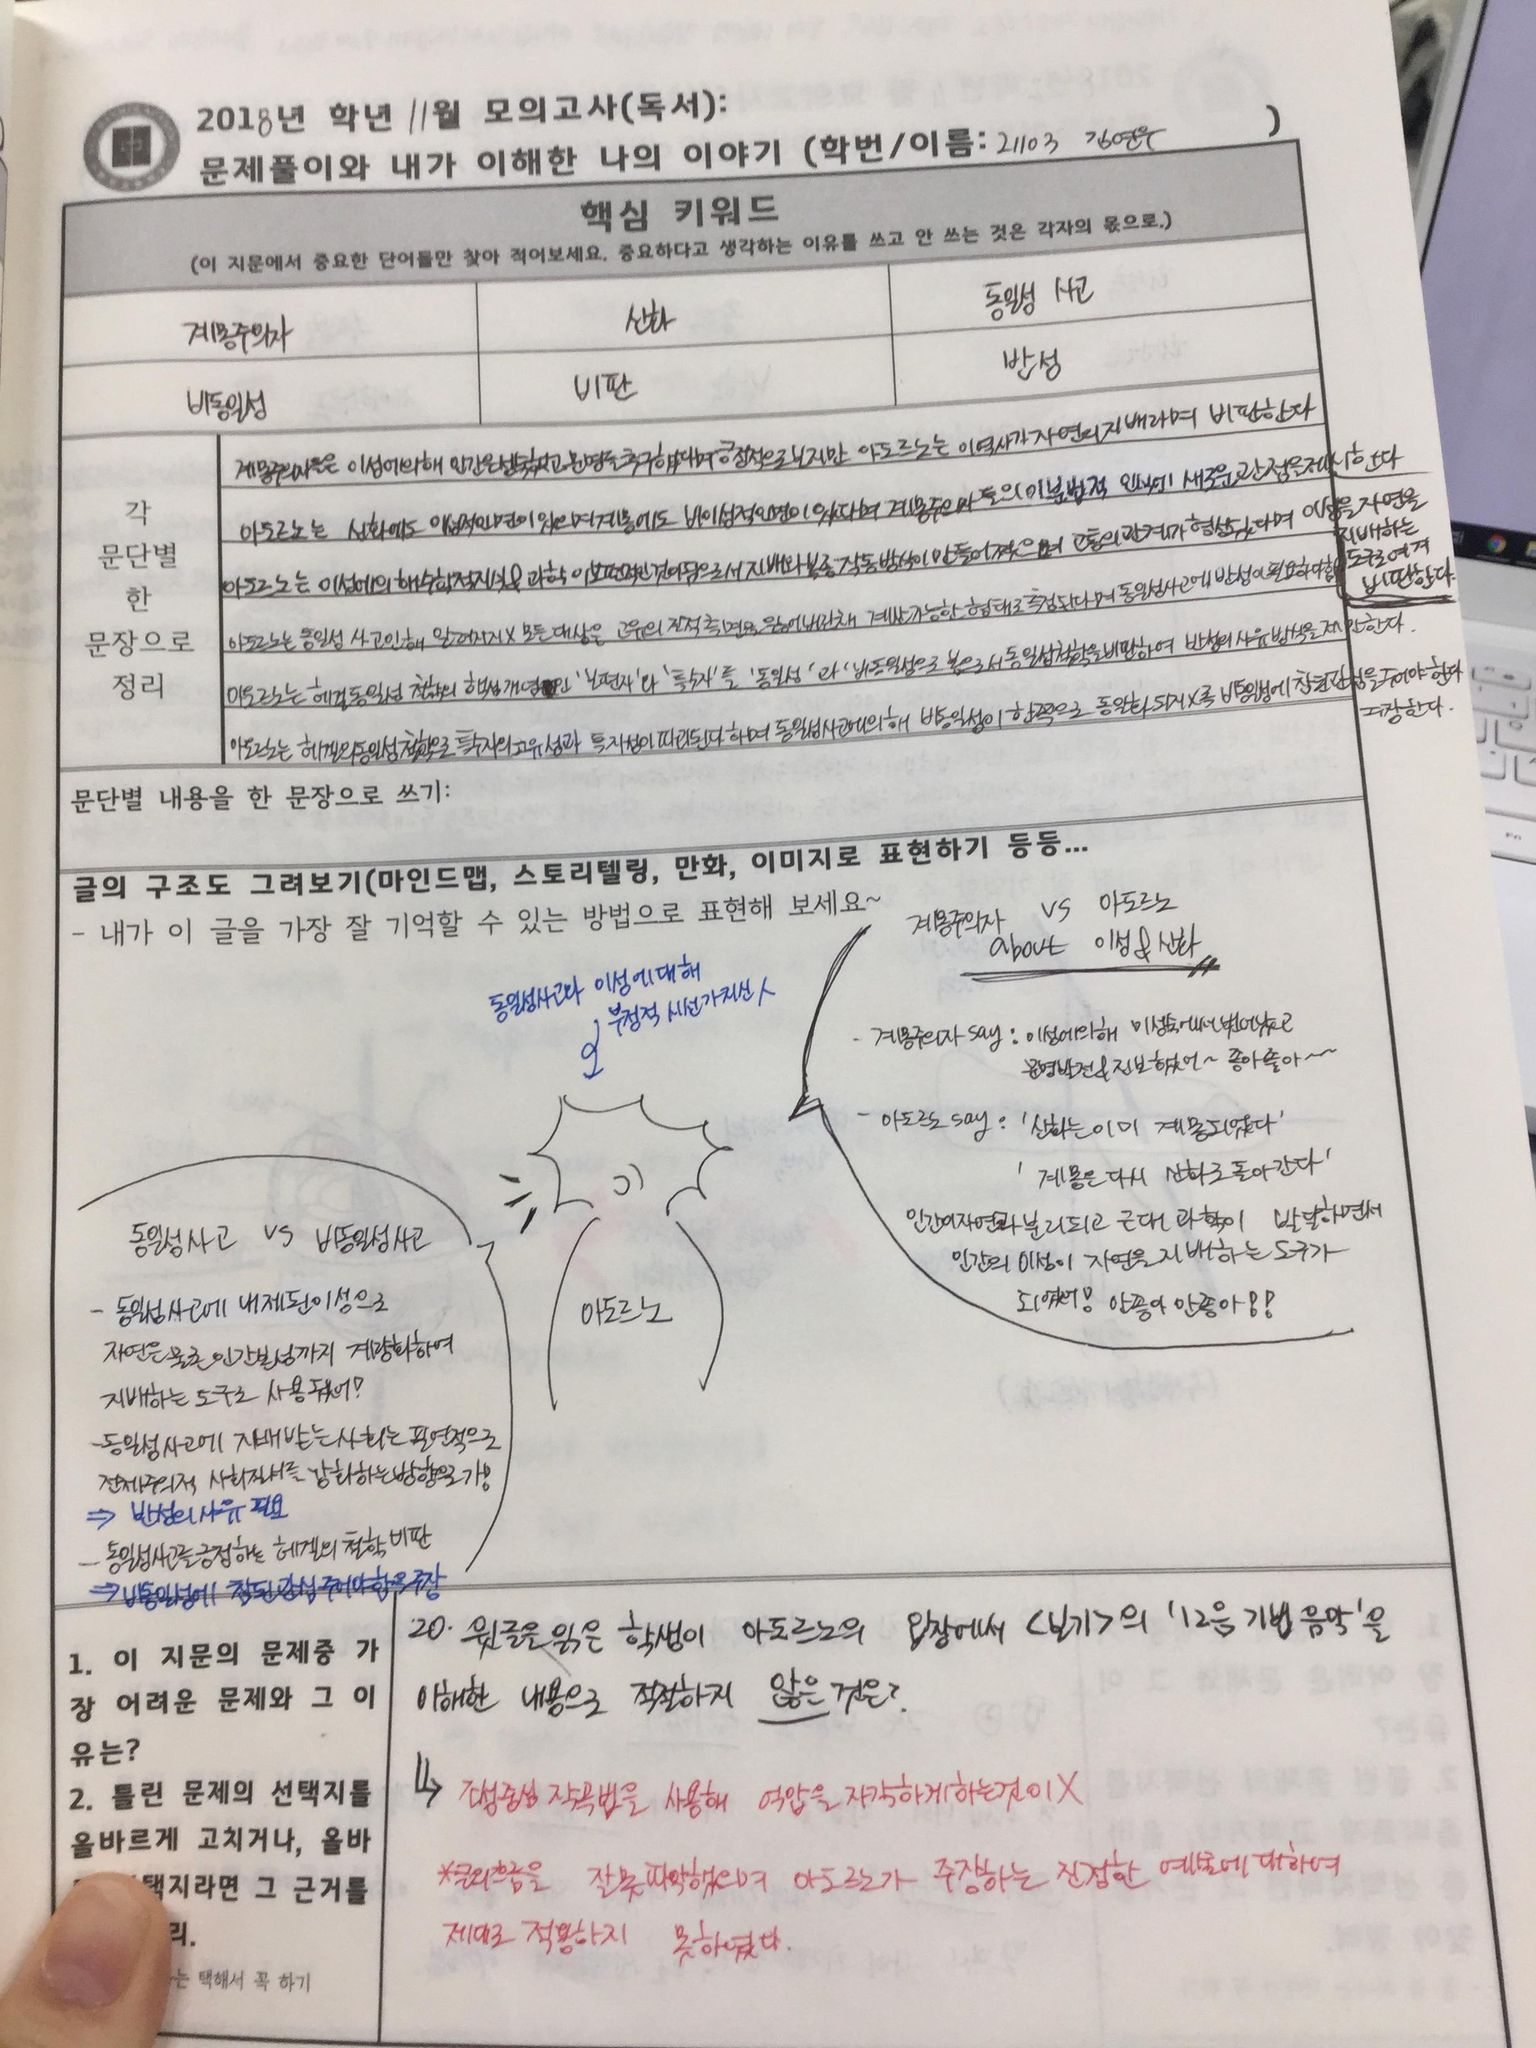 2018년 학년 11월 모의고사(독서):
문제풀이와 내가 이해한 나의 이야기 (학번/이름: 21103 김연우 )
핵심 키워드
(이 지문에서 중요한 단어들만 찾아 적어보세요. 중요하다고 생각하는 이유를 쓰고 안 쓰는 것은 각자의 몫으로.)
계몽주의자 신화 동일성 사고
비동일성 비판 반성
각 문단별 한 문장으로 정리
계몽주의자들은 이성에의해 인간은 발전하고 문명을 추구한다며 긍정적으로 보지만 아도르노는 이 역사가 자연의 지배라며 비판한다
아도르노는 신화에도 이성적인면이 있으며 계몽에도 비이성적인면이 있다며 계몽주의자들의 이분법적 인식에 새로운 관점을 제시한다
아도르노는 이성에의해 수학적지식& 과학이 보편적인것이 됨으로서 지배와 복종 작동방식이 만들어졌으며 고통의 관계가 형성된다며 이성을 자연을
지배하는
도구로여겨
비판한다.
아도르노는 동일성 사고인해 알려지지X 모든 대상은 고유의 질적 측면을 잃어버린채 계산가능한 형태로 측정된다며 동일성사고에 반성이 필요하다함
아도르노는 헤겔 동일성 철학의 핵심개념인 '보편자'와 '특수자'를 '동일성'과 '비동일성으로 봄으로서 동일성철학을 비판하며 반성의 사유 방식을 제안한다.
아도르노는 헤겔의 동일성 철학으로 특수자의 고유성과 특자성이 파괴된다 하며 동일성사고에의해 비동일성이 한쪽으로 동일화 되지X록 비동일성에 참된관심을 주어야 한다
주장한다.
문단별 내용을 한 문장으로 쓰기:
글의 구조도 그려보기(마인드맵, 스토리텔링, 만화, 이미지로 표현하기 등등...
- 내가 이 글을 가장 잘 기억할 수 있는 방법으로 표현해 보세요~
계몽주의자 vs 아도르노
about 이성&신화
동일성사고와 이성에대해
부정적 시선가지신人
- 계몽주의자 say : 이성에의해 미성숙에서 벗어났고
문명발전&진보했었어~ 좋아좋아~~
- 아도르노 say : '신화는 이미 계몽되었다'
'계몽은 다시 신화로 돌아간다'
인간이자연과분리되고 근대 과학이 발달하면서
인간의 이성이 자연을 지배하는 도구가
되었어! 안좋아 안좋아!!
아도르노
동일성사고 vs 비동일성사고
- 동일성사고에 내재된이성으로
자연은물론 인간본성까지 계량화하여
지배하는 도구로 사용됐어!
- 동일성사고에 지배받는사회는 필연적으로
전체주의적 사회질서를 강화하는방향으로가!
⇒ 반성의사유 필요
- 동일성사고를긍정하는 헤겔의 철학비판
⇒ 비동일성에 참된관심 주어야함을 주장
1. 이 지문의 문제중 가
장 어려운 문제와 그 이
유는?
2. 틀린 문제의 선택지를
올바르게 고치거나, 올바
택지라면 그 근거를
리.
는 택해서 꼭 하기
20. 윗글을 읽은 학생이 아도르노의 입장에서 <보기>의 '12음 기법 음악'을
이해한 내용으로 적절하지 않은 것은?
↳ 조성중심 작곡법을 사용해 억압을 자각하게하는것이X
*글의흐름을 잘못파악했으며 아도르노가 주장하는 진정한 예술에 대하여
제대로 적용하지 못하였다.